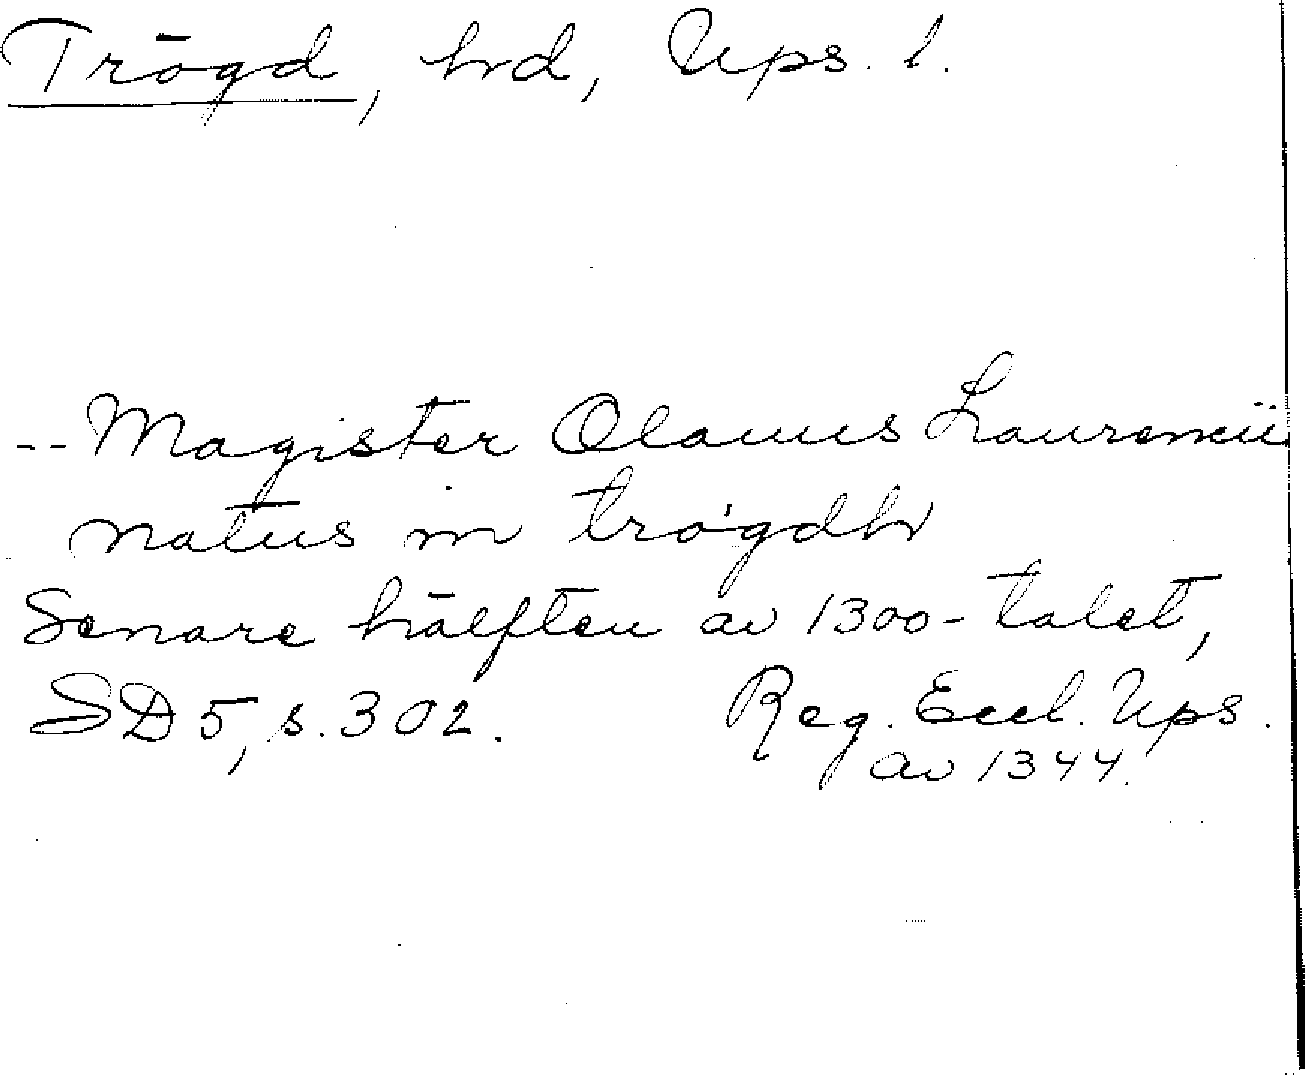 Trögd, hrd, Ups. l.
-- Magister Olauus Laurencii
natus in trøgdh
Senare hälften av 1300-talet,
SD 5, s. 302. Reg. Eccl. Ups.
av 1344.